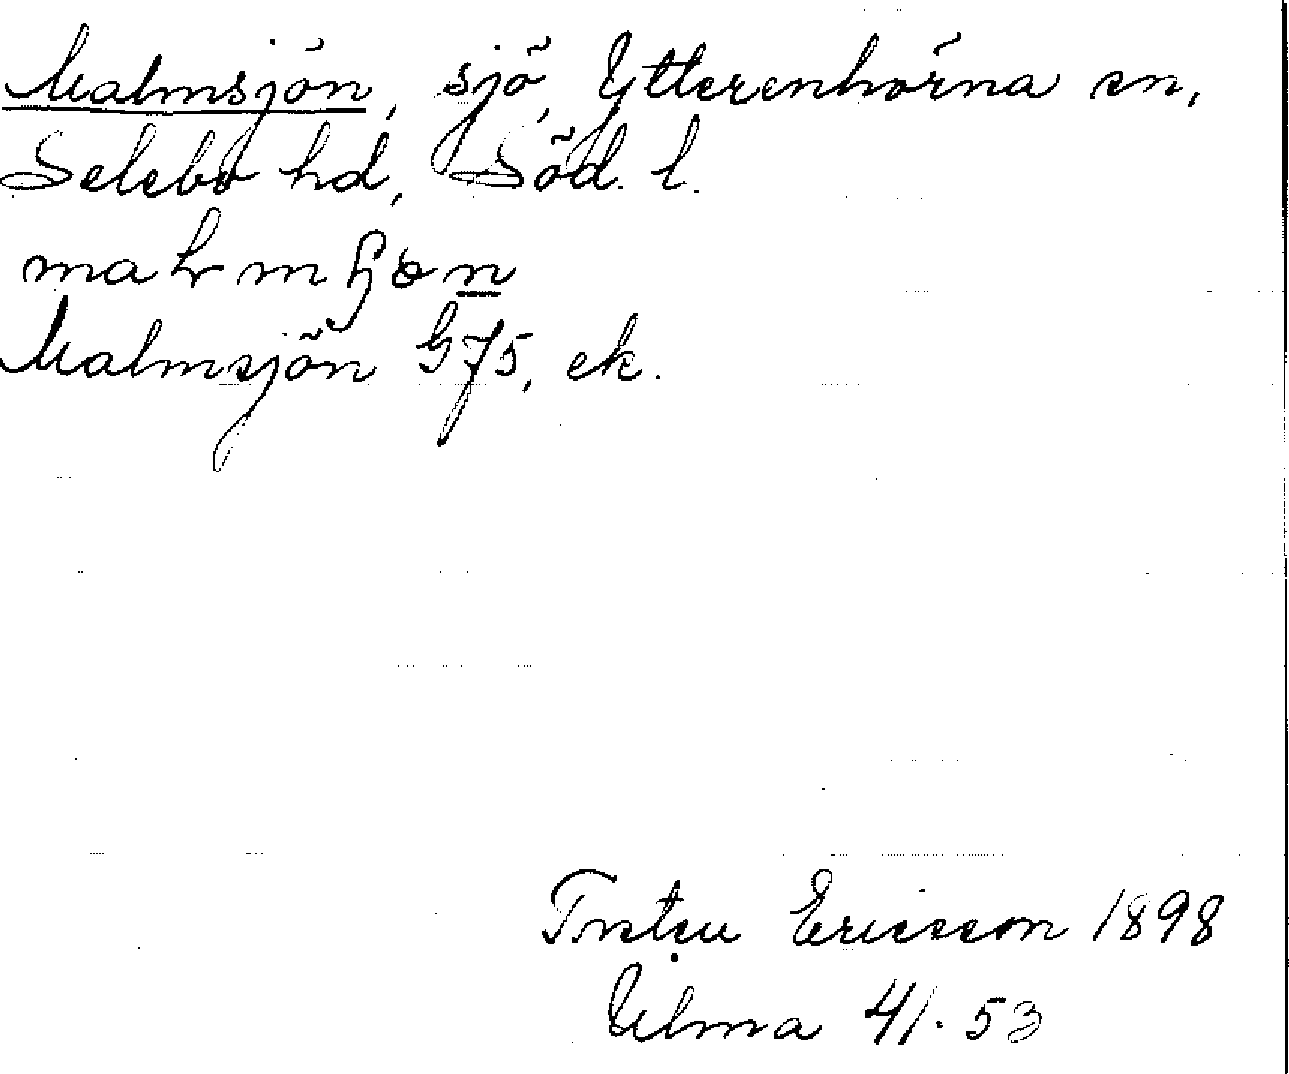 Malmsjön, sjö, Ytterenhörna sn,
Selebo hd, Söd. l.
Malmsjön G75, ek.
Ericsson 1898
Ulma 41.53